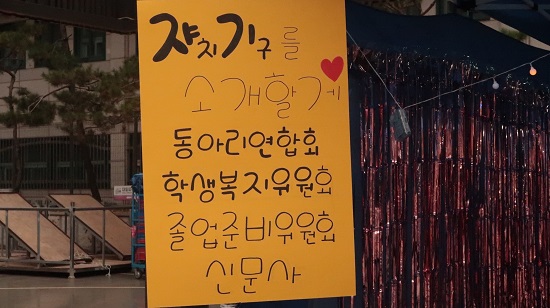 자치기구를
소개할게
동아리연합회
학생복지위원회
졸업준비위원회
신문사